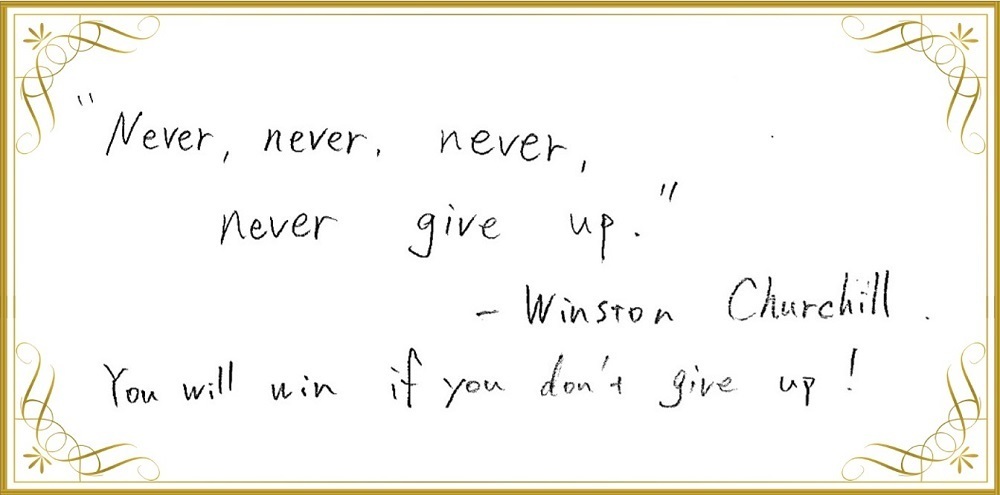 "Never, never, never,
never give up."
- Winston Churchill.
You will win if you don't give up!